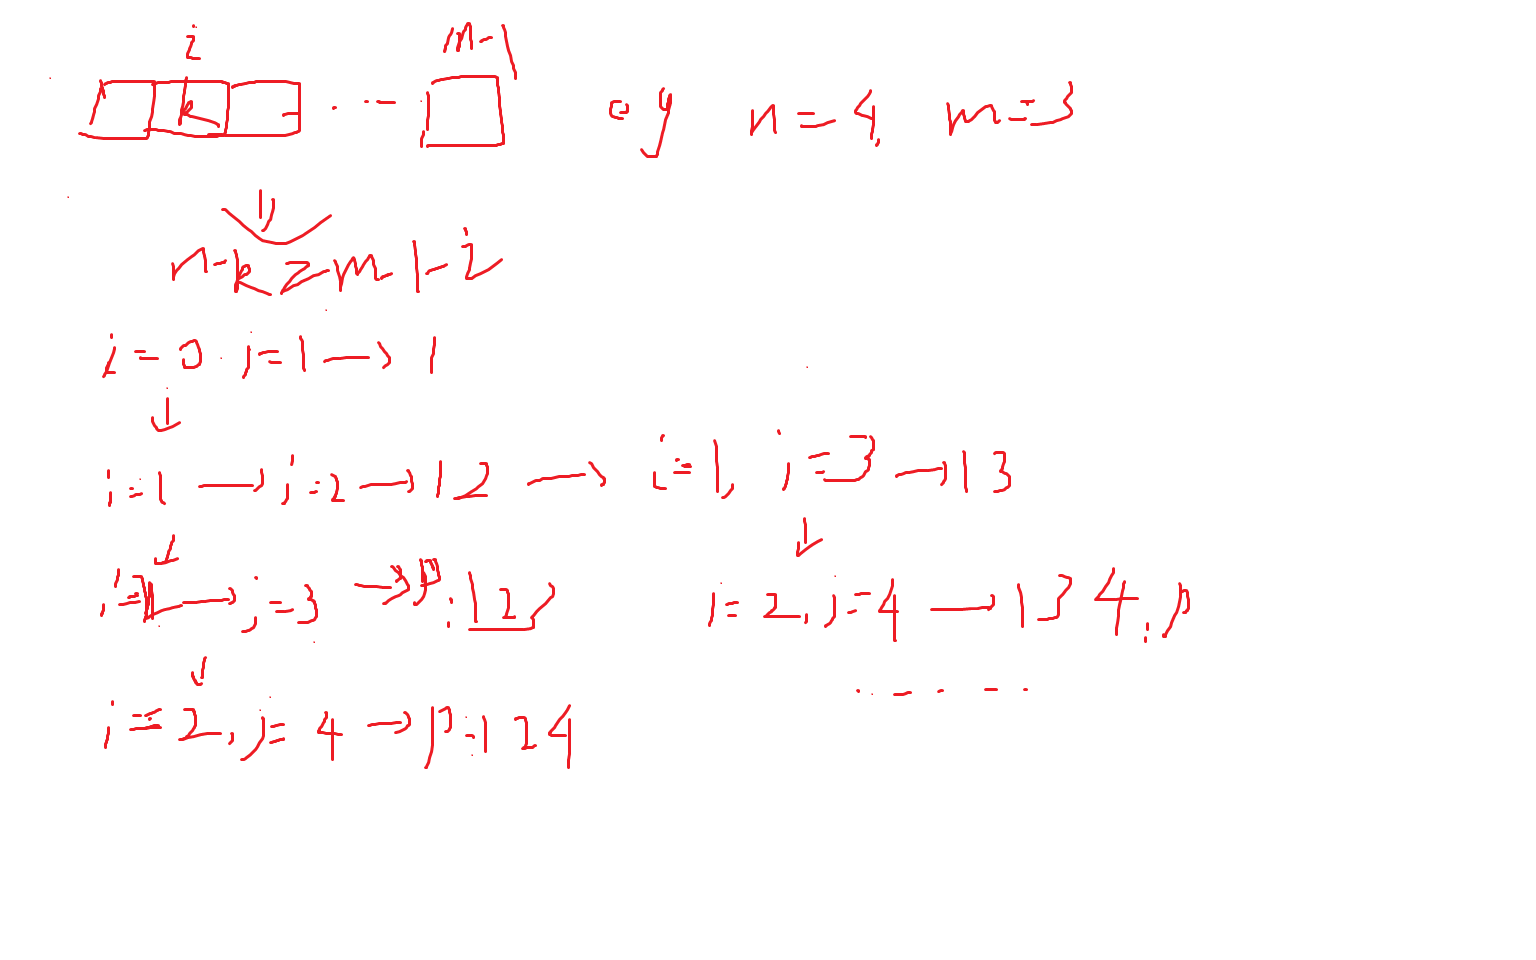 i m-1
k eg n=4, m=3
n-k≥m-1-i
i=0. j=1→1
↓
i=1→j=2→12→i=1, j=3→13
↓ ↓
i=2→j=3→p:123 i=2, j=4→134:p
↓
i=2, j=4→p:124